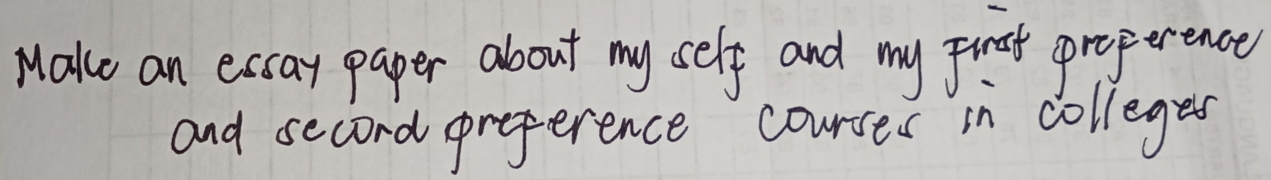 Make an essay paper about my self and my first preference
and second preference courses in colleges